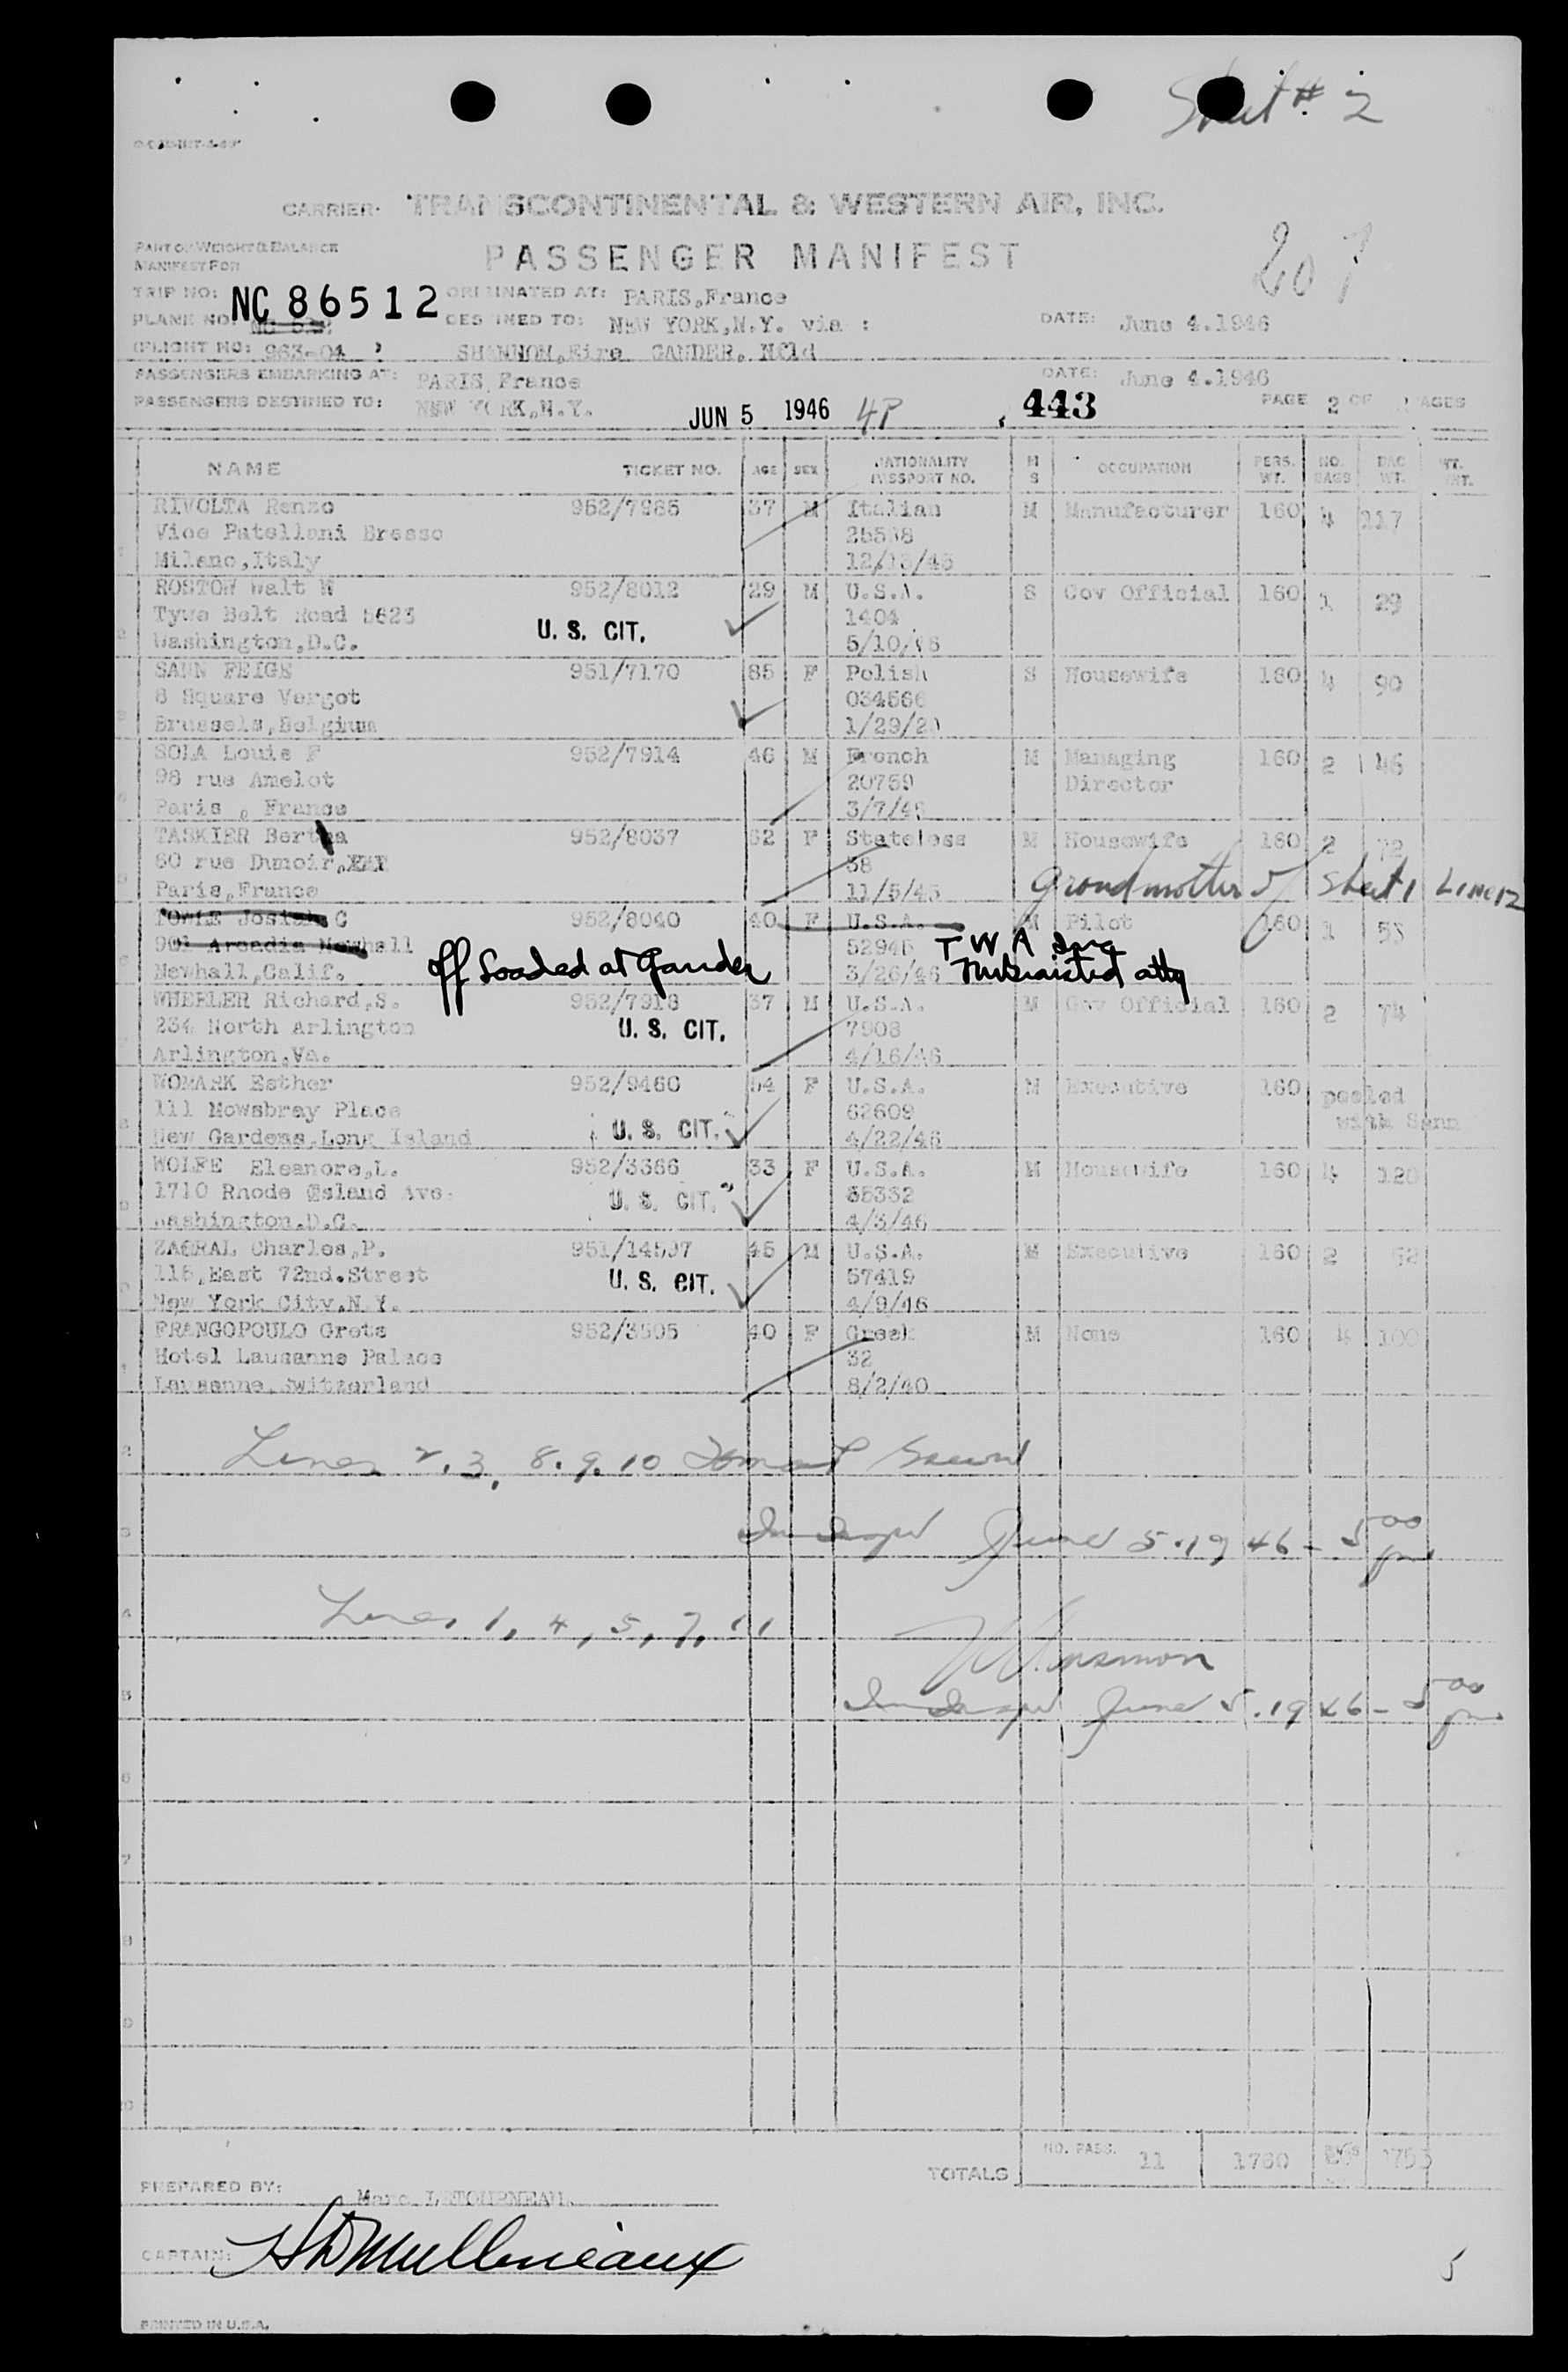 Sheet # 2
CARRIER: TRANSCONTINENTAL & WESTERN AIR, INC.
PART OF WEIGHT & BALANCE
MANIFEST FOR
PASSENGER MANIFEST
207
TRIP NO: NC 86512 ORIGINATED AT: PARIS,France
PLANE NO: DESTINED TO: NEW YORK,N.Y. via : DATE: June 4.1946
(FLIGHT NO: 963-04 ) SHANNON,Eire GANDER, Nfld
PASSENGERS EMBARKING AT: PARIS, France DATE: June 4.1946
PASSENGERS DESTINED TO: NEW YORK,N.Y. JUN 5 1946 4P 443 PAGE 2 OF PAGES
NAME TICKET NO. AGE SEX NATIONALITY PASSPORT NO. M S OCCUPATION PERS. WT. NO. BAGS BAG WT.
RIVOLTA Renzo 952/7985 37 M Italian M Manufacturer 160 4 117
Vice Patellani Bresso
Milano,Italy 12/13/45
ROSTOW Walt W 952/8012 29 M U.S.A. S Gov Official 160 1 29
Tywa Belt Road 5623 U. S. CIT. 1404
Washington,D.C. 5/10/46
SANN FEIGE 951/7170 85 F Polish S Housewife 160 4 90
8 Square Vergot 034566
Brussels,Belgium
SOLA Louis F 952/7914 46 M French M Managing 160 2 46
98 rue Amelot 20759 Director
Paris , France 3/7/46
TASKIER Bertha 952/8037 62 F Stateless M Housewife 160 2 72
60 rue Dunoir, 38
Paris,France 11/5/45 Grandmother of Sheet 1 Line 12
TOWLE Josiah C 952/8040 40 F U.S.A. M Pilot 160 1 53
901 Arcadia Newhall 52945 TWA Inc
Newhall,Calif. Off Loaded at Gander 3/26/46
WHEELER Richard,S. 952/7918 37 M U.S.A. M Gov Official 160 2 74
234 North Arlington U. S. CIT. 7908
Arlington,Va. 4/16/46
WOMARK Esther 952/9460 54 F U.S.A. M Executive 160 pooled
111 Mowsbray Place U. S. CIT. 62609 with Sann
New Gardens,Long Island 4/22/46
WOLFE Eleanore,L. 952/3366 33 F U.S.A. M Housewife 160 4 120
1710 Rhode Island Ave. U. S. CIT. 65332
Washington.D.C. 4/3/46
ZAGRAL Charles,P. 951/14597 45 M U.S.A. M Executive 160 2 52
115,East 72nd.Street U. S. CIT. 57419
New York City.N.Y. 4/9/46
FRANGOPOULO Greta 952/3505 40 F Greek M None 160 4 100
Hotel Lausanne Palace 32
Lausanne,Switzerland 8/2/40
Lines 2, 3, 8. 9. 10
June 5.1946 - 5 00 pm
Lines 1, 4, 5, 7, 11
June 5.1946 - 5 00 pm
TOTALS NO. PASS. 11 1760
PREPARED BY: Marc LETOURNEAU.
CAPTAIN: Mullineaux
PRINTED IN U.S.A.